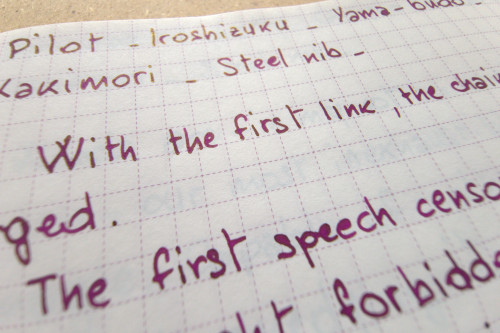 Pilot - Iroshizuku - Yama-budo -
Kakimori - Steel nib -
With the first link, the chain
ged.
The first speech censo
ht forbidde